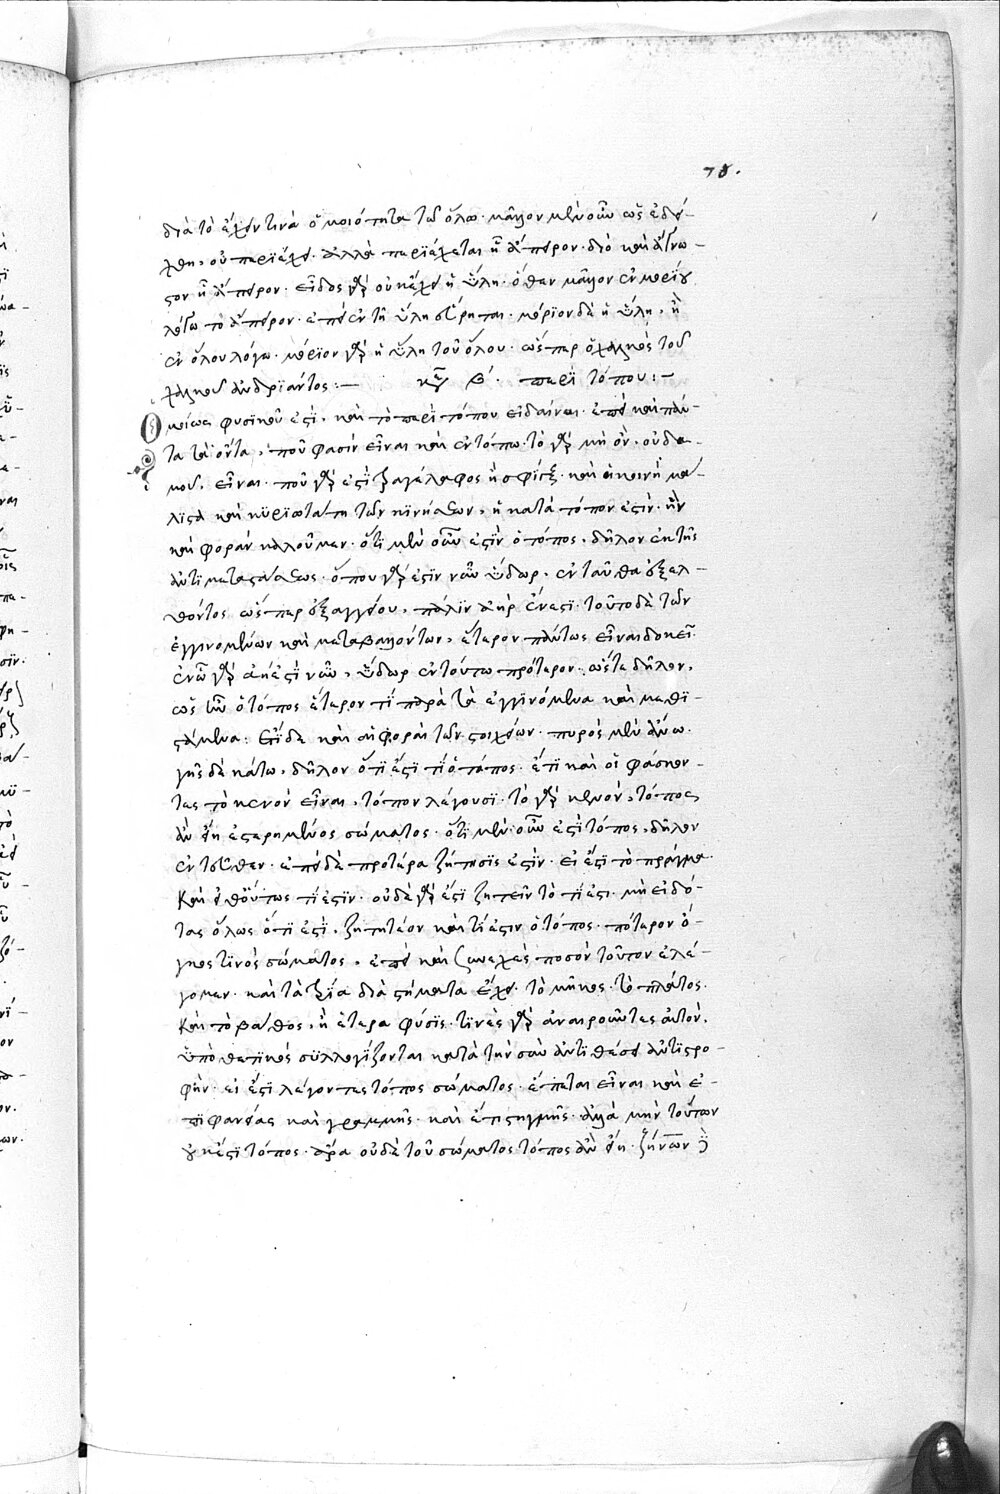 70.
διὰ τὸ ἔχειν τινὰ ὁμοιότητα τῶ ὅλω. μᾶλλον μὲν οὖν ὡς ἐδεί-
χθη, οὐ περϊέχει. ἀλλὰ περϊέχεται ἧ ἄπειρον. διὸ καὶ ἄγνω-
στον ἧ ἄπειρον. εἶδος γὰρ οὐκ ἔχει ἡ ὕλη. ὅθεν μᾶλλον ἐν μορίου
λόγω τὸ ἄπειρον. ἐπεὶ ἐν τῆ ὕλη στέρηται. μόριον δὲ ἡ ὕλη, ἢ
ἐν ὅλου λόγω. μόριον γὰρ ἡ ὕλη τοῦ ὅλου. ὥσπερ ὁ χαλκὸς τοῦ
χαλκοῦ ἀνδριάντος :— κεφ β΄. περϊ τόπου :—
Ὁμοίως φυσϊκοῦ ἐστϊ, καὶ τὸ περὶ τόπου εἰδέναι. ἐπεὶ καὶ πάν-
τα τὰ ὄντα, ποῦ φασὶν εἶναι καὶ ἐν τόπω. τὸ γὰρ μὴ ὂν, οὐδα-
μοῦ, εἶναι. ποῦ γὰρ ἐστϊ τραγέλαφος ἢ σφίγξ. καὶ ἡ κοινὴ μά-
λϊστα καὶ κυρϊωτάτη τῶν κϊνήσεων, ἡ κατὰ τόπον ἐστϊν. ἣν
καὶ φορὰν καλοῦμεν. ὅτϊ μὲν οὖν ἐστϊν ὁ τόπος, δῆλον ἐκ τῆς
ἀντϊμεταστάσεως. ὅπου γὰρ ἐστϊν νῦν ὕδωρ, ἐνταῦθα ἐξελ-
θόντος ὥσπερ ἐξ ἀγγείου, πάλϊν ἀὴρ ἔνεστϊ. τοῦτο δὲ τῶν
ἐγγινομένων καὶ μεταβαλλόντων, ἕτερον πάντως εἶναι δοκεῖ.
ἐν ὧ γὰρ ἀήρ ἐστϊ νῦν, ὕδωρ ἐν τούτω πρότερον. ὥστε δῆλον,
ὡς ἦν ὁ τόπος ἕτερόν τϊ παρὰ τὰ ἐγγϊνόμενα καὶ μεθϊ-
στάμενα. Εἰ δὲ καὶ αἱ φοραὶ τῶν στοιχείων. πυρὸς μὲν ἄνω.
γῆς δὲ κάτω, δῆλον ὅτϊ ἐστϊ τϊ ὁ τόπος. ἔτϊ καὶ οἱ φάσκον-
τες τὸ κενὸν εἶναι, τόπον λέγουσϊ. τὸ γὰρ κενὸν, τόπος
ἂν εἴη ἐστερημένος σώματος. ὅτϊ μὲν οὖν ἐστϊ τόπος, δῆλον
ἐντεῦθεν. ἐπεὶ δὲ προτέρα ζήτησϊς ἐστϊν. εἰ ἔστϊ τὸ πρᾶγμα.
Καὶ εἶθ᾽ οὕτως τί ἐστϊν. οὐδὲ γὰρ ἐστϊ ζητεῖν τὸ τϊ ἐστϊ. μὴ εἰδό-
τας ὅλως ὅτϊ ἐστϊ, ζητητέον καὶ τί ἐστιν ὁ τόπος. πότερον ὄ-
γκος τϊνὸς σώματος. ἐπεὶ καὶ συνεχὲς ποσὸν τοῦτον ἐλέ-
γομεν. καὶ τὰ τρία διαστήματα ἔχει. τὸ μῆκος. τὸ πλάτος.
Καὶ τὸ βάθος, ἢ ἑτέρα φύσϊς. τϊνὲς γὰρ ἀναιροῦντες αὐτὸν,
ὑποθετικῶς συλλογίζονται κατὰ τὴν σὺν ἀντϊθέσει ἀντϊστρο-
φὴν. εἰ ἔστϊ λέγοντες τόπος σώματος. ἕπεται εἶναι καὶ ἐ-
πϊφανείας καὶ γραμμῆς. καὶ ἔτι στιγμῆς. ἀλλὰ μὴν τούτων
οὐκ ἔστϊ τόπος. ἄρα οὐδὲ τοῦ σώματος τόπος ἂν εἴη. ζήνων